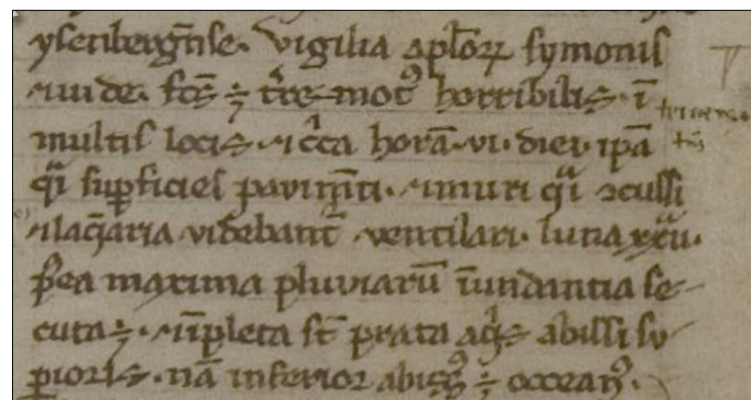 ysenbergēse. Vigilia apl̄oꝝ symonis
⁊ iude. fcs̄ ÷ t̄re mot⁹ horribilis. ī
multis locis. ⁊ c̄ca horā. vi. diei. ipā
q̄i suꝑficies pavim̄ti. ⁊ muri q̄i ↄcussi
⁊ laq̄aria videbant̄ ventilari. luna xxii.
p̄ea maxima pluviarū īundantia se-
cuta ÷. ⁊ īpleta st̄ prata aq̄s abissi su-
ꝑioris. nā inferior abiss⁹ ÷ occean⁹.